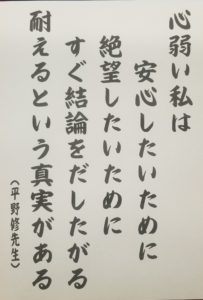 心弱い私は
安心したいために
絶望したいために
すぐ結論をだしたがる
耐えるという真実がある
（平野修先生）